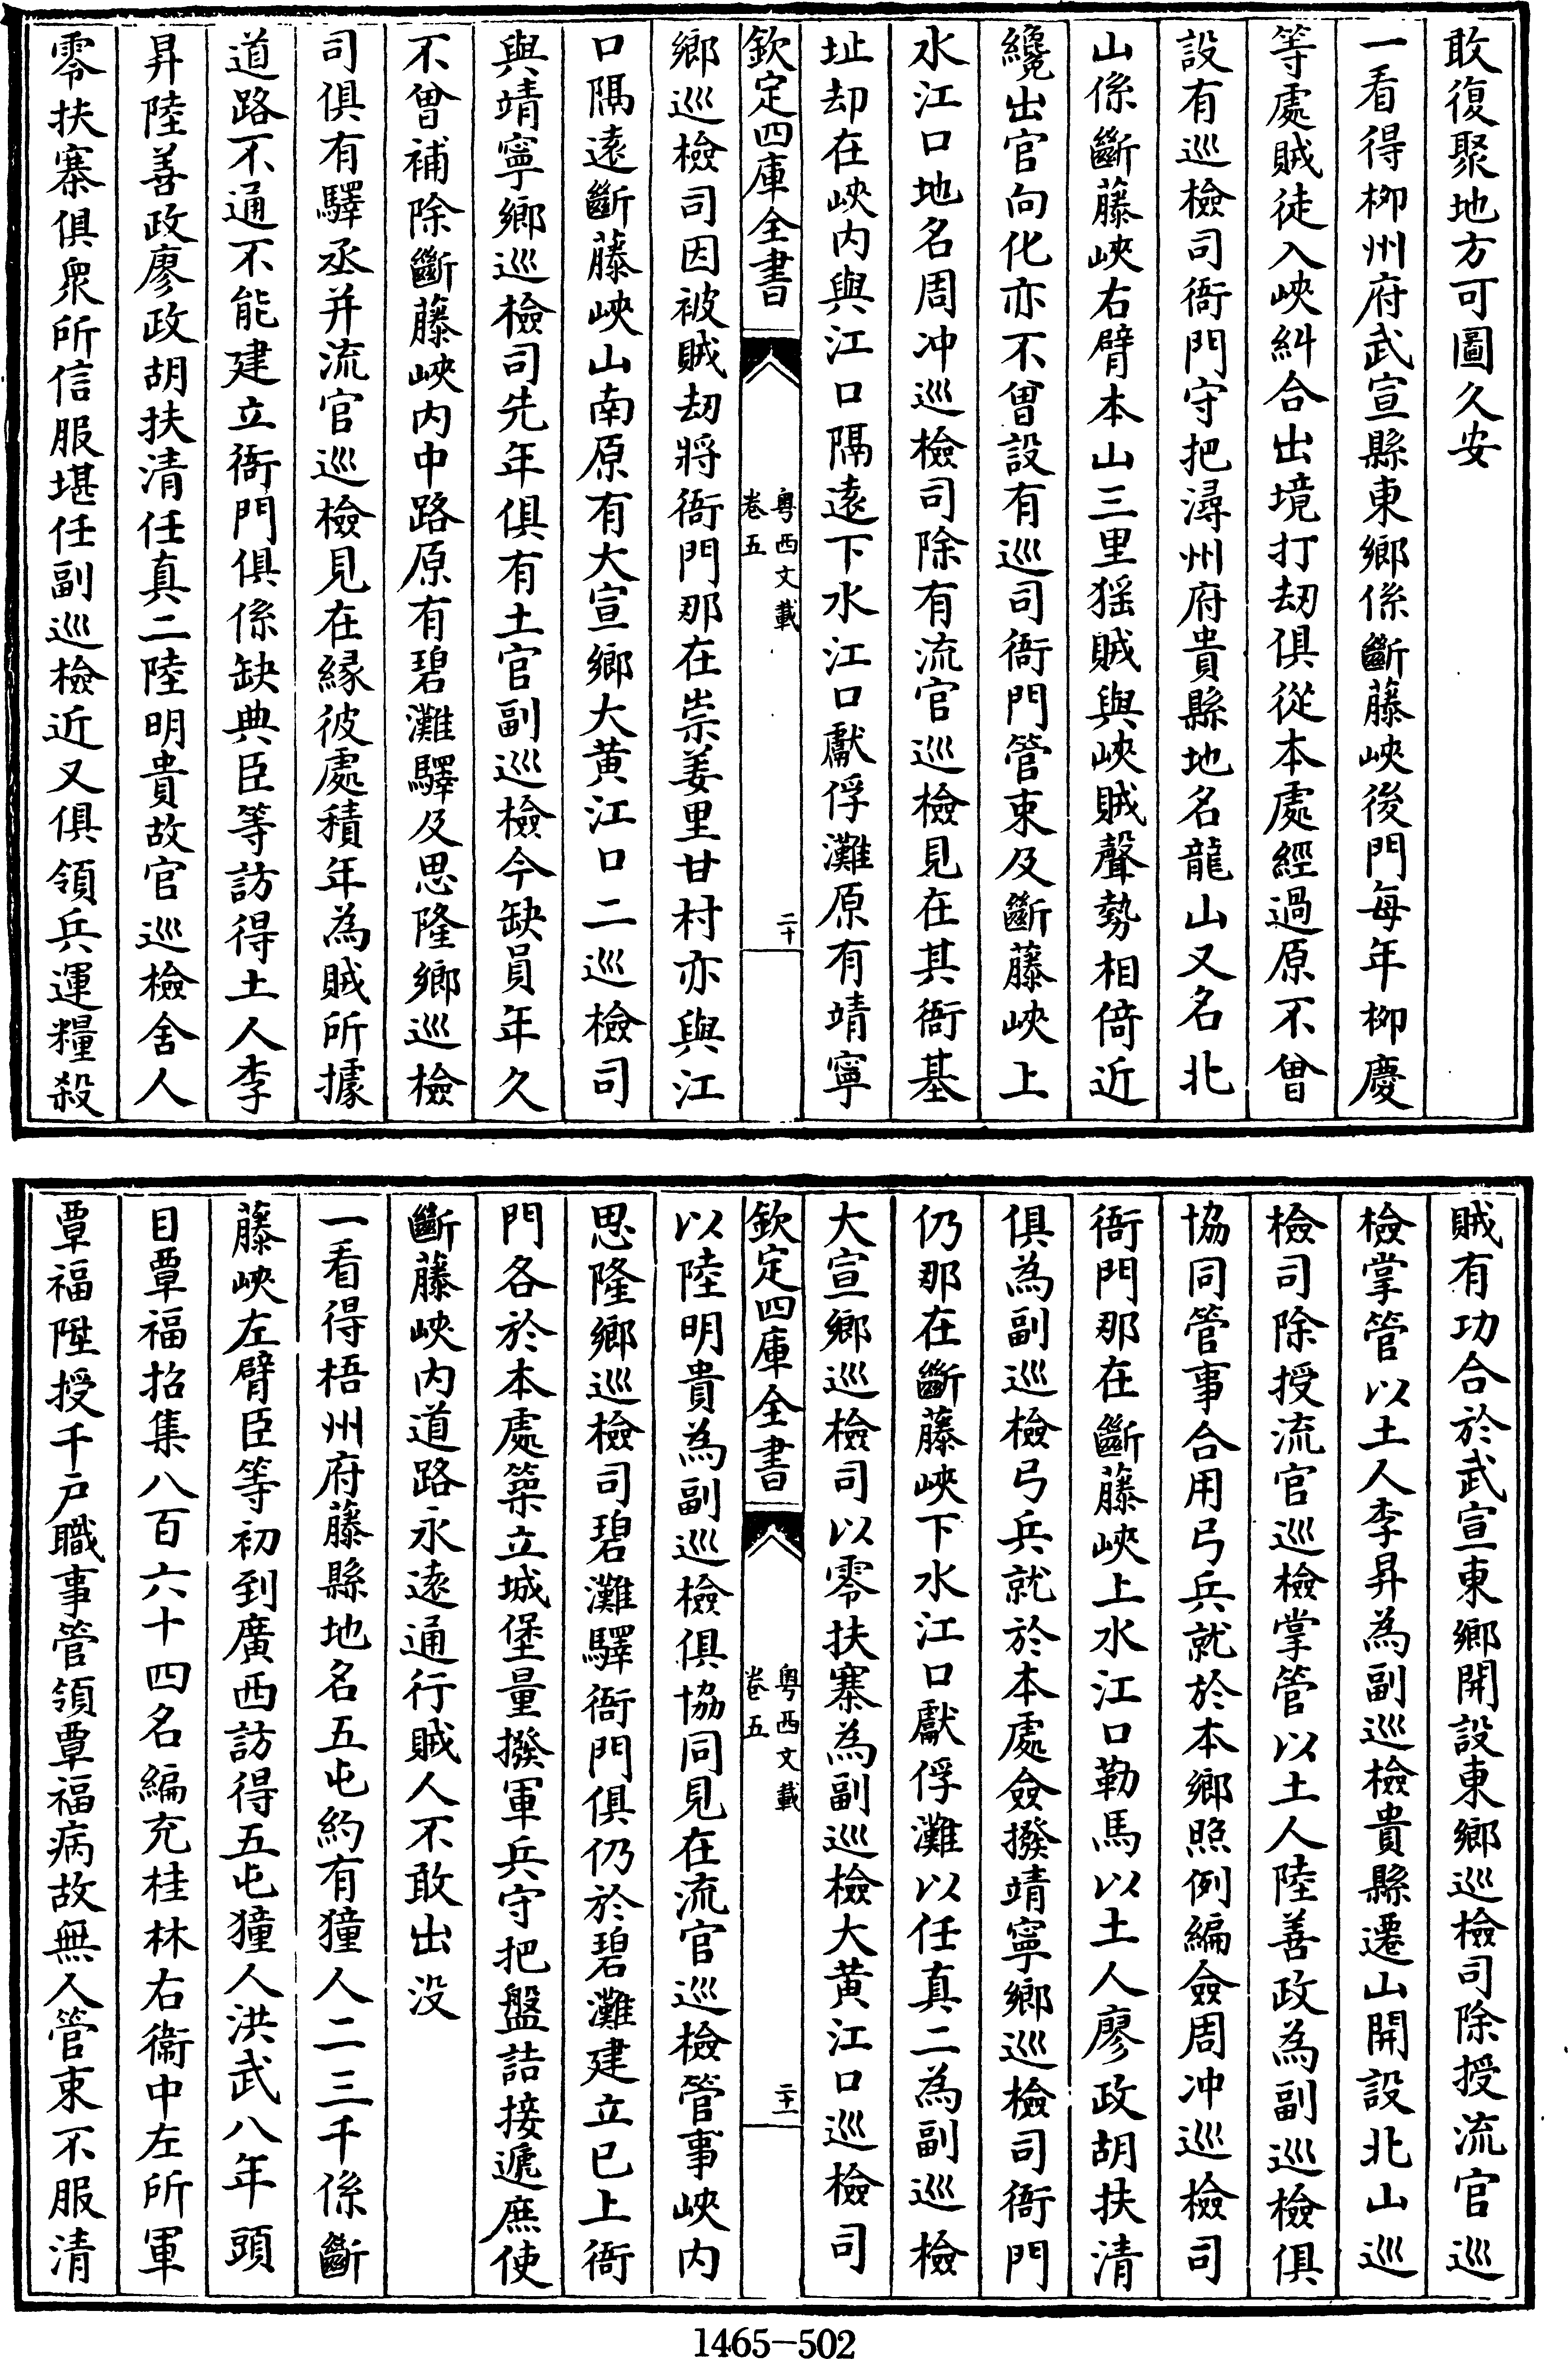 敢復聚地方可圖久安
一看得栁州府武宣縣東鄉係斷藤峽後門每年栁慶
等處賊徒入峽糾合出境打刼俱從本處經過原不曾
設有巡檢司衙門守把潯州府貴縣地名龍山又名北
山係斷藤峽右臂本山三里猺賊與峽賊聲勢相倚近
纔出官向化亦不曾設有巡司衙門管束及斷藤峽上
水江口地名周冲巡檢司除有流官巡檢見在其衙基
址却在峽内與江口隔遠下水江口獻俘灘原有靖寧
欽定四庫全書
粤西文載
卷五
二十
鄉巡檢司因被賊刼將衙門那在崇姜里甘村亦與江
口隔遠斷藤峽山南原有大宣鄉大黄江口二巡檢司
與靖寧鄉巡檢司先年俱有土官副巡檢今缺員年久
不曾補除斷藤峽内中路原有碧灘驛及思隆鄉巡檢
司俱有驛丞并流官巡檢見在縁彼處積年為賊所據
道路不通不能建立衙門俱係缺典臣等訪得土人李
昇陸善政廖政胡扶清任真二陸明貴故官巡檢舍人
零扶寨俱衆所信服堪任副巡檢近又俱領兵運糧殺
賊有功合於武宣東鄉開設東鄉巡檢司除授流官巡
檢掌管以土人李昇為副巡檢貴縣遷山開設北山巡
檢司除授流官巡檢掌管以土人陸善政為副巡檢俱
協同管事合用弓兵就於本鄉照例編僉周冲巡檢司
衙門那在斷藤峽上水江口勒馬以土人廖政胡扶清
俱為副巡檢弓兵就於本處僉撥靖寧鄉巡檢司衙門
仍那在斷藤峽下水江口獻俘灘以任真二為副巡檢
大宣鄉巡檢司以零扶寨為副巡檢大黄江口巡檢司
欽定四庫全書
粤西文載
卷五
二十一
以陸明貴為副巡檢俱協同見在流官巡檢管事峽内
思隆鄉巡檢司碧灘驛衙門俱仍於碧灘建立已上衙
門各於本處築立城堡量撥軍兵守把盤詰接遞庶使
斷藤峽内道路永遠通行賊人不敢出没
一看得梧州府藤縣地名五屯約有獞人二三千係斷
藤峽左臂臣等初到廣西訪得五屯獞人洪武八年頭
目覃福招集八百六十四名編充桂林右衞中左所軍
覃福陞授千戶職事管領覃福病故無人管束不服清
1465-502